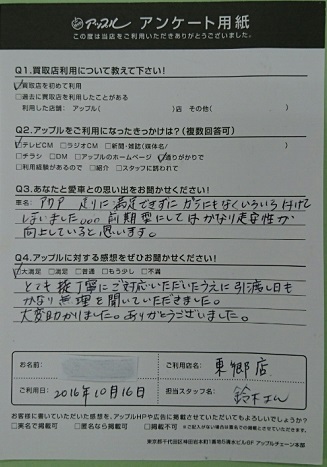 アップル アンケート用紙
この度は当店をご利用いただきありがとうございました。
Q1.買取店利用について教えて下さい!
☑買取店を初めて利用
□過去に買取店を利用したことがある
利用した店舗: アップル( )店 その他( )
Q2.アップルをご利用になったきっかけは?(複数回答可)
☑テレビCM □ラジオCM □新聞・雑誌(媒体名/ )
□チラシ □DM □アップルのホームページ ☑通りがかりで
□利用経験があるので □紹介 □スタッフに誘われて
Q3.あなたと愛車との思い出をお聞かせください!
車名: アクア 走りに満足できずにガラにもなくいろいろ付けて
しまいました。。。 前期型にしてはかなり走安性が
向上していると思います。
Q4.アップルに対する感想をぜひお聞かせください!
☑大満足 □満足 □普通 □もう少し □不満
とても 丁寧にご対応いただいたうえに引渡し日も
かなり無理を聞いていただきました。
大変助かりました。ありがとうございました。
お名前:
ご利用店名: 東郷店
ご利用日: 2016年10月16日
担当スタッフ名: 鈴木さん
お客様に書いていただいた感想を、アップルHPや広告に掲載させていただいてもよろしいでしょうか?
□実名で掲載可 □匿名なら掲載可 □掲載不可
東京都千代田区神田岩本町1番地5清水ビル6F アップルチェーン本部